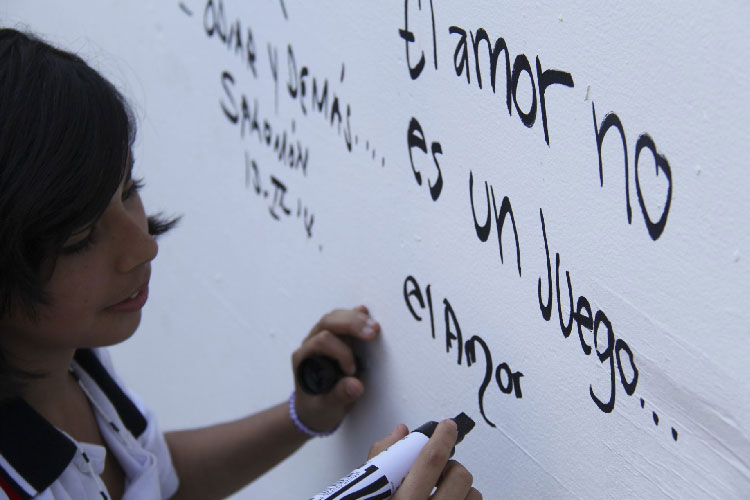 ODIAR Y DEMÁS....
SALOMÓN
10-II-14.
El amor no
es un Juego...
el Amor